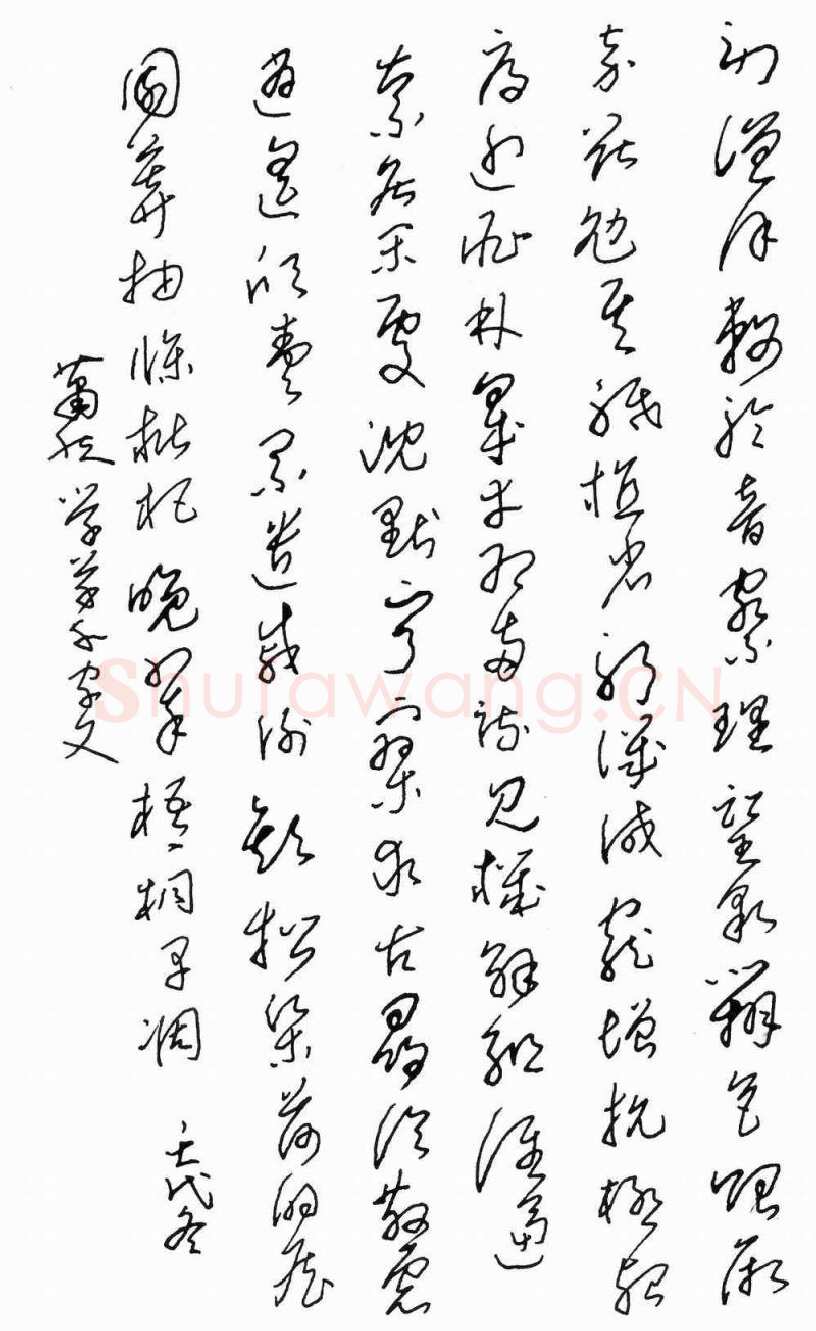 敕聆音察理鑒貌辨色貽厥
嘉猷勉其祗植省躬譏誡寵增抗極殆
辱近恥林皋幸即兩疏見機解組誰逼
索居閑處沈默寂寥求古尋論散慮
逍遙欣奏累遣慼謝歡招渠荷的歷
園莽抽條枇杷晚翠梧桐早凋 冬
蕭 学草千字文
Shufawang.CN